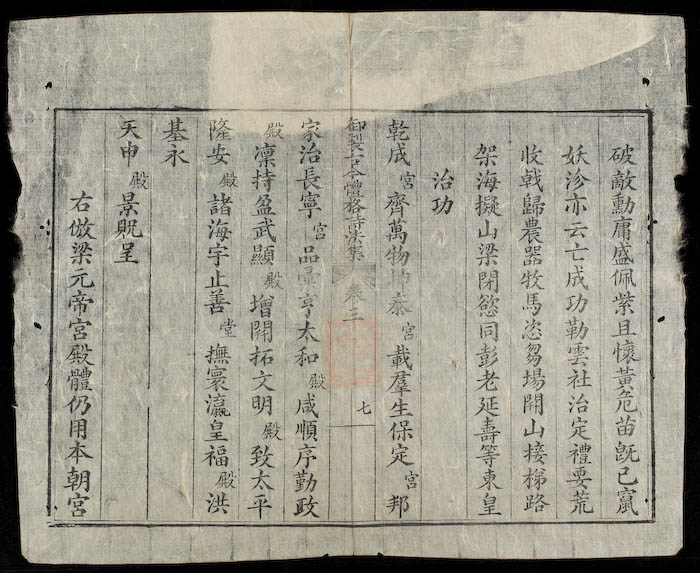 破敵勳庸盛佩紫且懷黃危苗旣已竄
妖沴亦云亡成功勒雲社治定禮要荒
收戟歸農器牧馬恣芻場開山接梯路
架海擬山梁閉慾同彭老延壽等東皇
治功
乾成宮齊萬物坤泰宮載羣生保定宮邦
御製古今體格詩法集 卷三 七
家治長寧宮品彙亨太和殿咸順序勤政
殿凜持盈武顯殿增開拓文明殿致太平
隆安殿諸海宇止善堂撫寰瀛皇福殿洪
基永
天申殿景貺呈
右倣梁元帝宮殿體仍用本朝宮